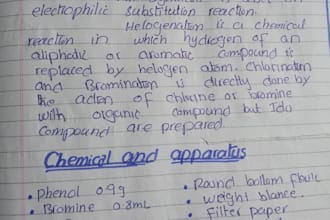 electrophilic substitution reaction.
Helogenation is a chemical
reaction in which hydrogen of an
aliphatic or aromatic compound is
replaced by helogen atom. Chlorination
and Bromination is directly done by
the acton of chlorine or bromine
with organic compound but Ido
compound are prepared.
Chemical and apparatus
• Phenol 0.9g
• Bromine 0.8mL
• Round bottom flask
• weight blance.
• Filter paper